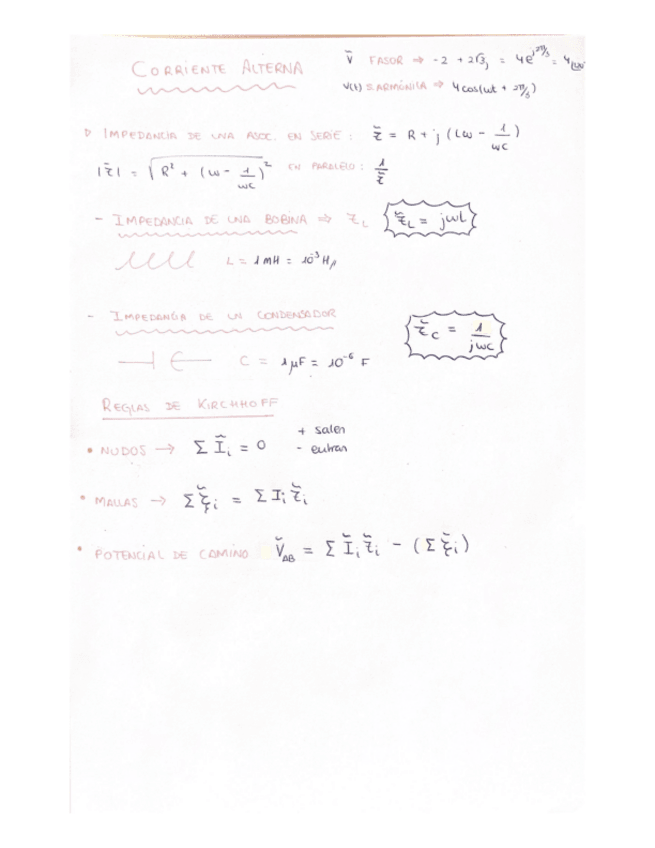 CORRIENTE ALTERNA
Ṽ FASOR ⇒ -2 + 2√3j = 4e^(j2π/3) = 4
V(t) ≡ ARMÓNICA ⇒ 4cos(ωt + 2π/3)
▷ IMPEDANCIA DE UNA ASOC. EN SERIE : z̃ = R + j (Lω - 1/ωC)
|z̃| = √(R² + (ω - 1/ωC)²) EN PARALELO : 1/z̃
- IMPEDANCIA DE UNA BOBINA ⇒ z̃L z̃L = jωL
L = 1mH = 10⁻³ H//
- IMPEDANCIA DE UN CONDENSADOR z̃C = 1/jωC
C = 1μF = 10⁻⁶ F
REGLAS DE KIRCHHOFF
• NUDOS → Σ Ĩi = 0 + salen
- entran
• MALLAS → Σ ξ̃i = Σ Ii z̃i
• POTENCIAL DE CAMINO ṼAB = Σ Ĩi z̃i - (Σ ξ̃i)